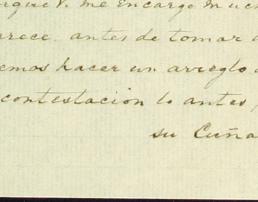 V. me encargo
arece, antes de tomar
emos hacer un arreglo
contestación lo antes,
su Cuña